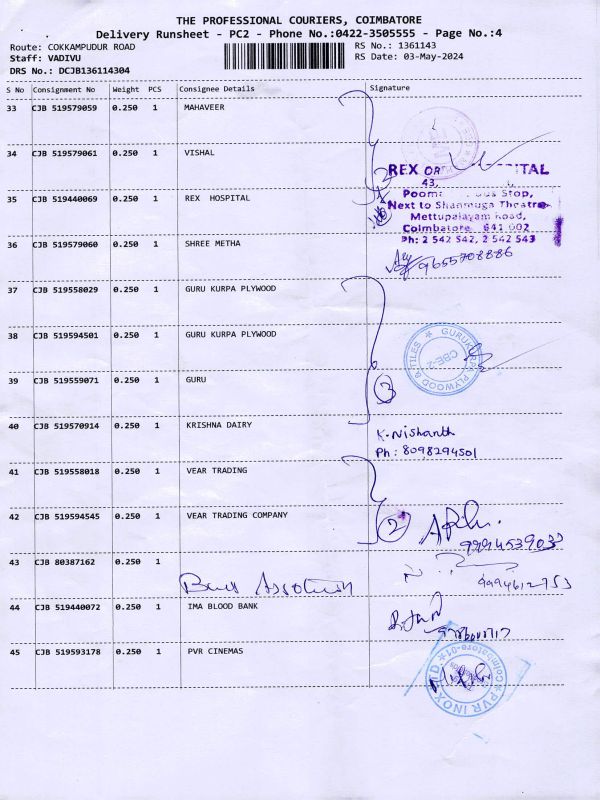 THE PROFESSIONAL COURIERS, COIMBATORE
Delivery Runsheet - PC2 - Phone No.:0422-3505555 - Page No.:4
Route: COKKAMPUDUR ROAD RS No.: 1361143
Staff: VADIVU RS Date: 03-May-2024
DRS No.: DCJB136114304
S No Consignment No Weight PCS Consignee Details Signature
33 CJB 519579059 0.250 1 MAHAVEER
34 CJB 519579061 0.250 1 VISHAL
REX HOSPITAL
43,
35 CJB 519440069 0.250 1 REX HOSPITAL
Stop,
Next to Shanmuga Theatre
Mettupalayam Road,
Coimbatore 641 002
Ph: 2 542 542, 2 542 543
36 CJB 519579060 0.250 1 SHREE METHA
9655708886
37 CJB 519558029 0.250 1 GURU KURPA PLYWOOD
38 CJB 519594501 0.250 1 GURU KURPA PLYWOOD
PLYWOOD & TILES
CBE-2
39 CJB 519559071 0.250 1 GURU
3
40 CJB 519570914 0.250 1 KRISHNA DAIRY
K. Nishanth
Ph : 8098294501
41 CJB 519558018 0.250 1 VEAR TRADING
42 CJB 519594545 0.250 1 VEAR TRADING COMPANY
2
43 CJB 80387162 0.250 1
44 CJB 519440072 0.250 1 IMA BLOOD BANK
45 CJB 519593178 0.250 1 PVR CINEMAS
PVR INOX LTD
Coimbatore-01